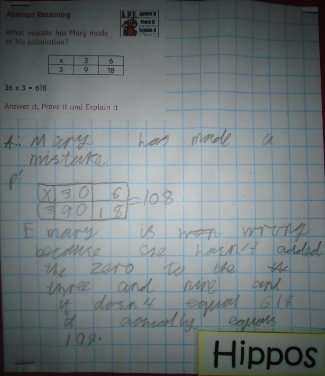 Abstract Reasoning
A.P.E. Answer it
Prove it
Explain it
What mistake has Mary made
in his calculation?
x 3 6
3 9 18
36 x 3 = 618
Answer it, Prove it and Explain it
A: Mary has made a
mistake
P:
x 30 6
3 90 18 =108
E mary is wrong
because she hasn't added
the zero to the
three and nine and
it doesn't equal 618
it actually equals
108.
Hippos